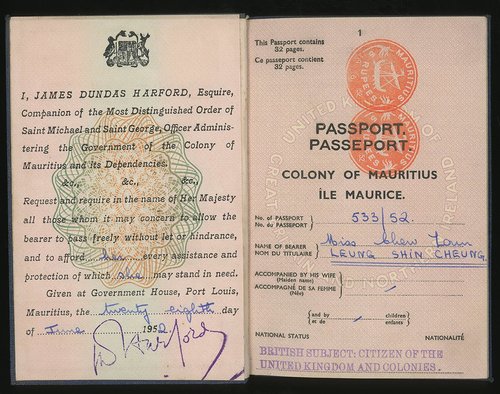 I, JAMES DUNDAS HARFORD, Esquire,
Companion of the Most Distinguished Order of
Saint Michael and Saint George, Officer Adminis-
tering the Government of the Colony of
Mauritius and its Dependencies.
&c., &c., &c.,
Request and require in the Name of Her Majesty
all those whom it may concern to allow the
bearer to pass freely without let or hindrance,
and to afford her every assistance and
protection of which she may stand in need.
Given at Government House, Port Louis,
Mauritius, the twenty eighth day
of June 1952
Harford
This Passport contains
32 pages.
Ce passeport contient
32 pages.
1
MAURITIUS
RUPEES
MAURITIUS
PASSPORT.
PASSEPORT.
COLONY OF MAURITIUS
ÎLE MAURICE.
No. of PASSPORT
No. du PASSEPORT
533/52.
NAME OF BEARER
NOM DU TITULAIRE
Miss Chew
LEUNG SHIN CHEUNG
ACCOMPANIED BY HIS WIFE
(Maiden name)
ACCOMPAGNÉ DE SA FEMME
(Née)
and by
et de
children
enfants
NATIONAL STATUS NATIONALITÉ
BRITISH SUBJECT: CITIZEN OF THE
UNITED KINGDOM AND COLONIES.